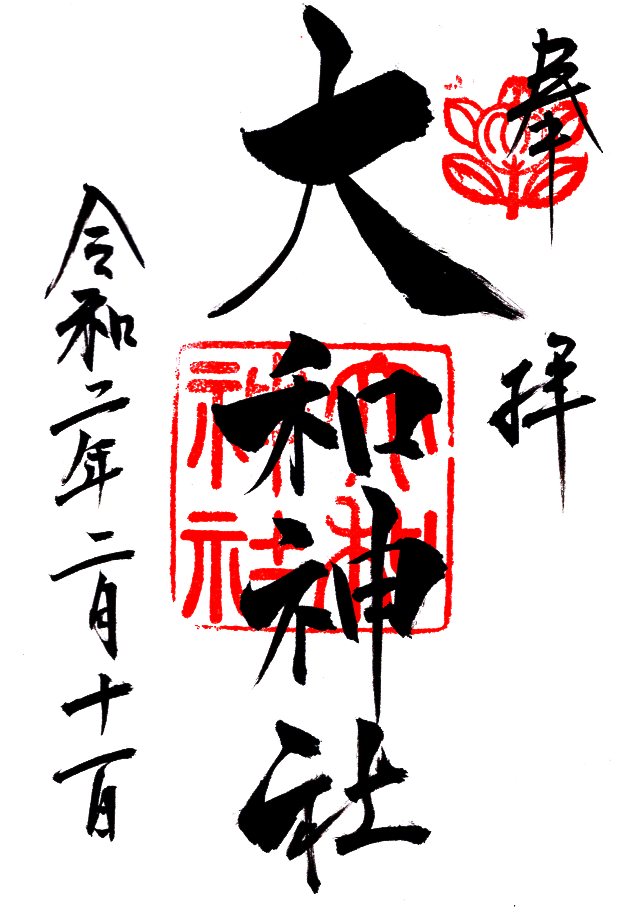 奉拝
大和神社
大和
神社
令和二年二月十一日